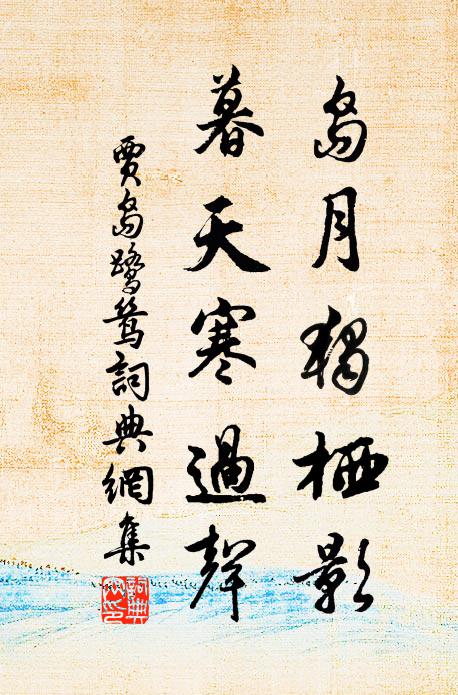 島月獨栖影
暮天寒過聲
賈島鷺鷥詞典網集